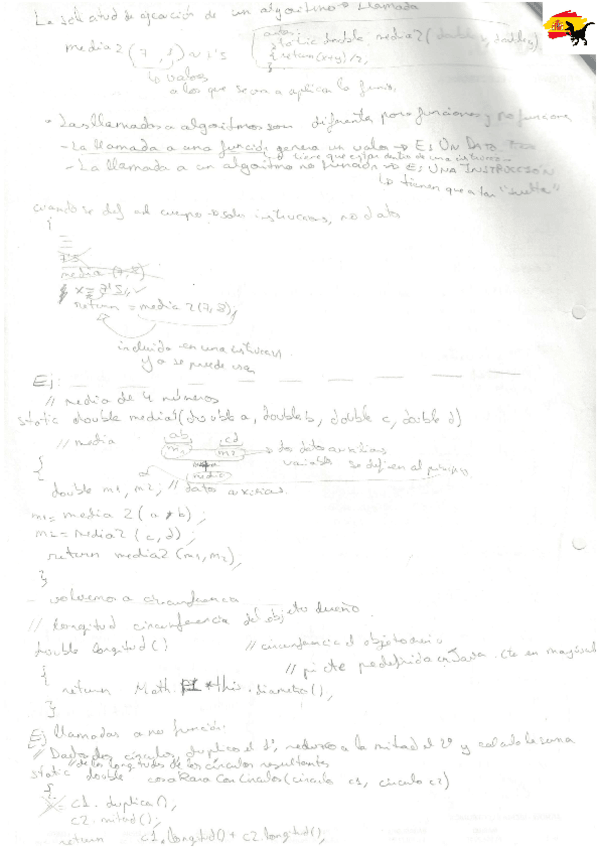 La solicitud de ejecución de un algoritmo → Llamada
media 2 (7, 1) ~ 1'5
static double media2(double x, double y)
{ return (x+y)/2;
}
↳ valores
a los que se van a aplicar la func.
• Las llamadas a algoritmos son diferentes para funciones y no funciones
- La llamada a una función genera un valor → ES UN DATO.
↳ tiene que estar dentro de una instrucc..
- La llamada a un algoritmo no función → ES UNA INSTRUCCIÓN
↳ tienen que estar "suelta"
cuando se def el cuerpo → solo instrucciones, no datos
{
7'5
media (7,8)
x = 7'5; ✓
return = media 2(7,8);
incluido en una instrucc.
ya se puede usar
Ej:
// media de 4 números
static double media4(double a, double b, double c, double d)
// media
ab cd
m1 m2 → dos datos auxiliares
variables se definen al principio
media
{
double m1, m2; // datos auxiliares.
m1 = media 2 (a, b);
m2 = media 2 (c, d);
return media2 (m1, m2);
}
- volvemos a circunferencia
// longitud circunferencia del objeto dueño.
double longitud() // circunferencia el objeto dueño
// pi cte predefinida en Java. Cte en mayúscul
{
return Math.PI * this.diametro();
}
Ej llamadas a no función.
// Dados dos círculos, duplico el 1º, reduzco a la mitad el 2º y calculo la suma
// de las longitudes de los círculos resultantes
static double cosaRaraConCirculos(circulo c1, circulo c2)
{
c1.duplica();
c2.mitad();
return c1.longitud() + c2.longitud();